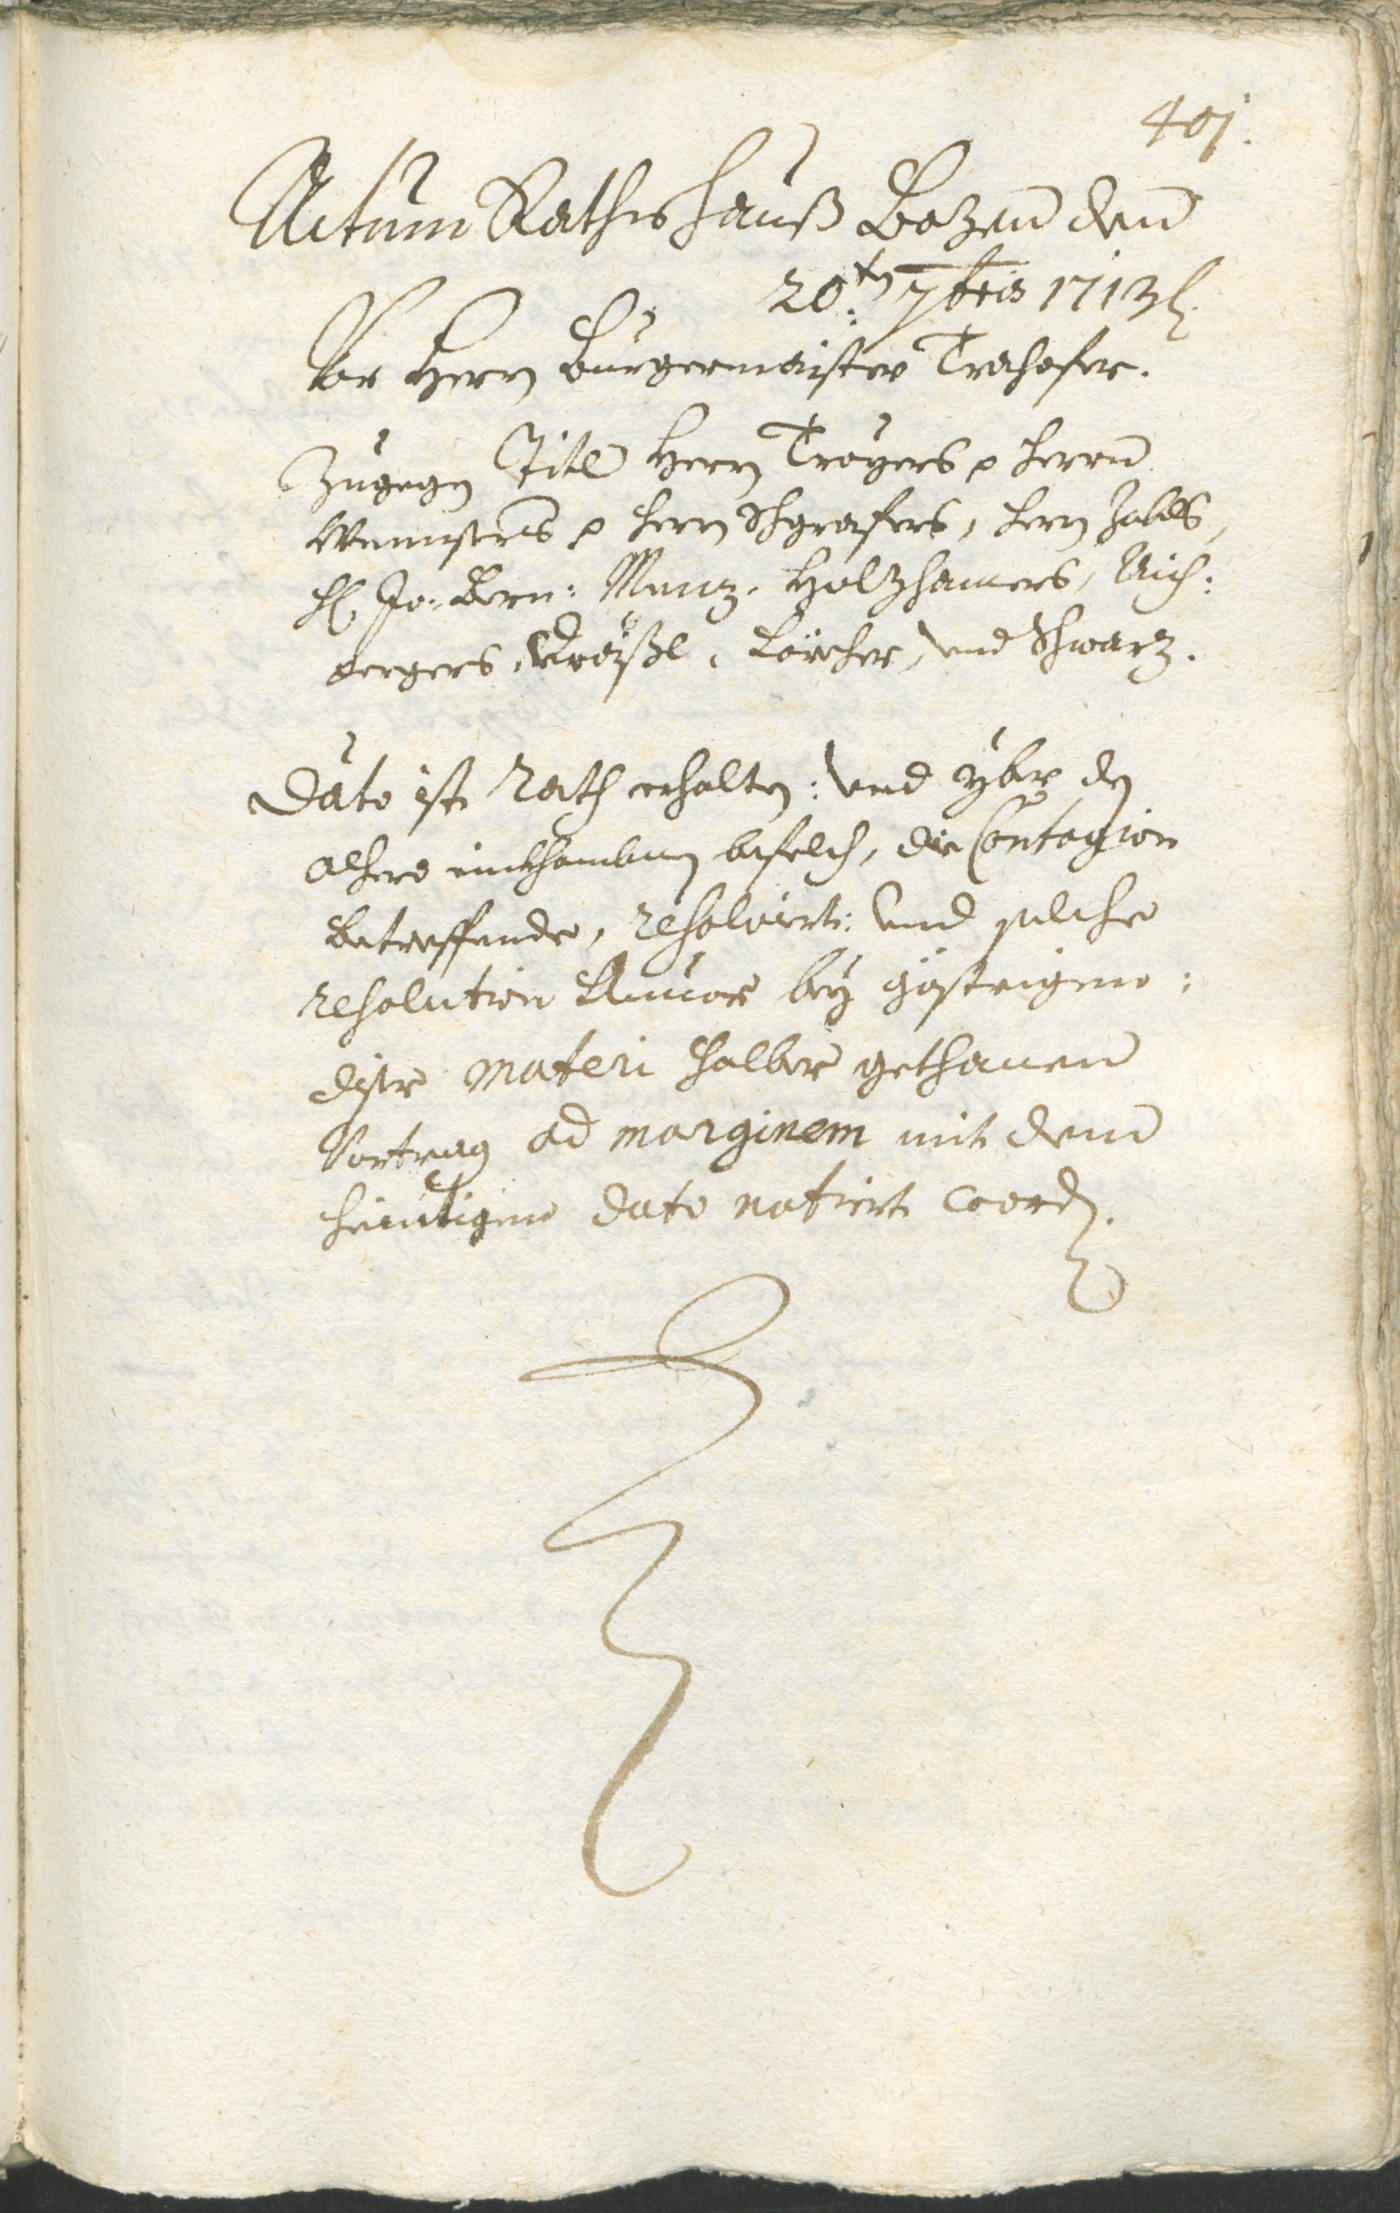 401.
Actum Rathshauß Bozen den
20.ten 7bris 1713
Vor Herrn Burgermaister Trahofer.
Zugegn Titl Herrn Troyers p herrn
herrn Schgrafers, herrn Zobls,
H. Jo. Bern: Menz, Holzhamers, Aich:
bergers, Lörcher, und Schwarz.
Dato ist Rath erhalten: und yber den
alhero einkhombnen befelch, die Contagion
betreffende, resolviert: und solche
resolution bey gestrigem:
diser materi halber gethanen
Vortrag ad marginem mit dem
heuntigem dato notiert word.